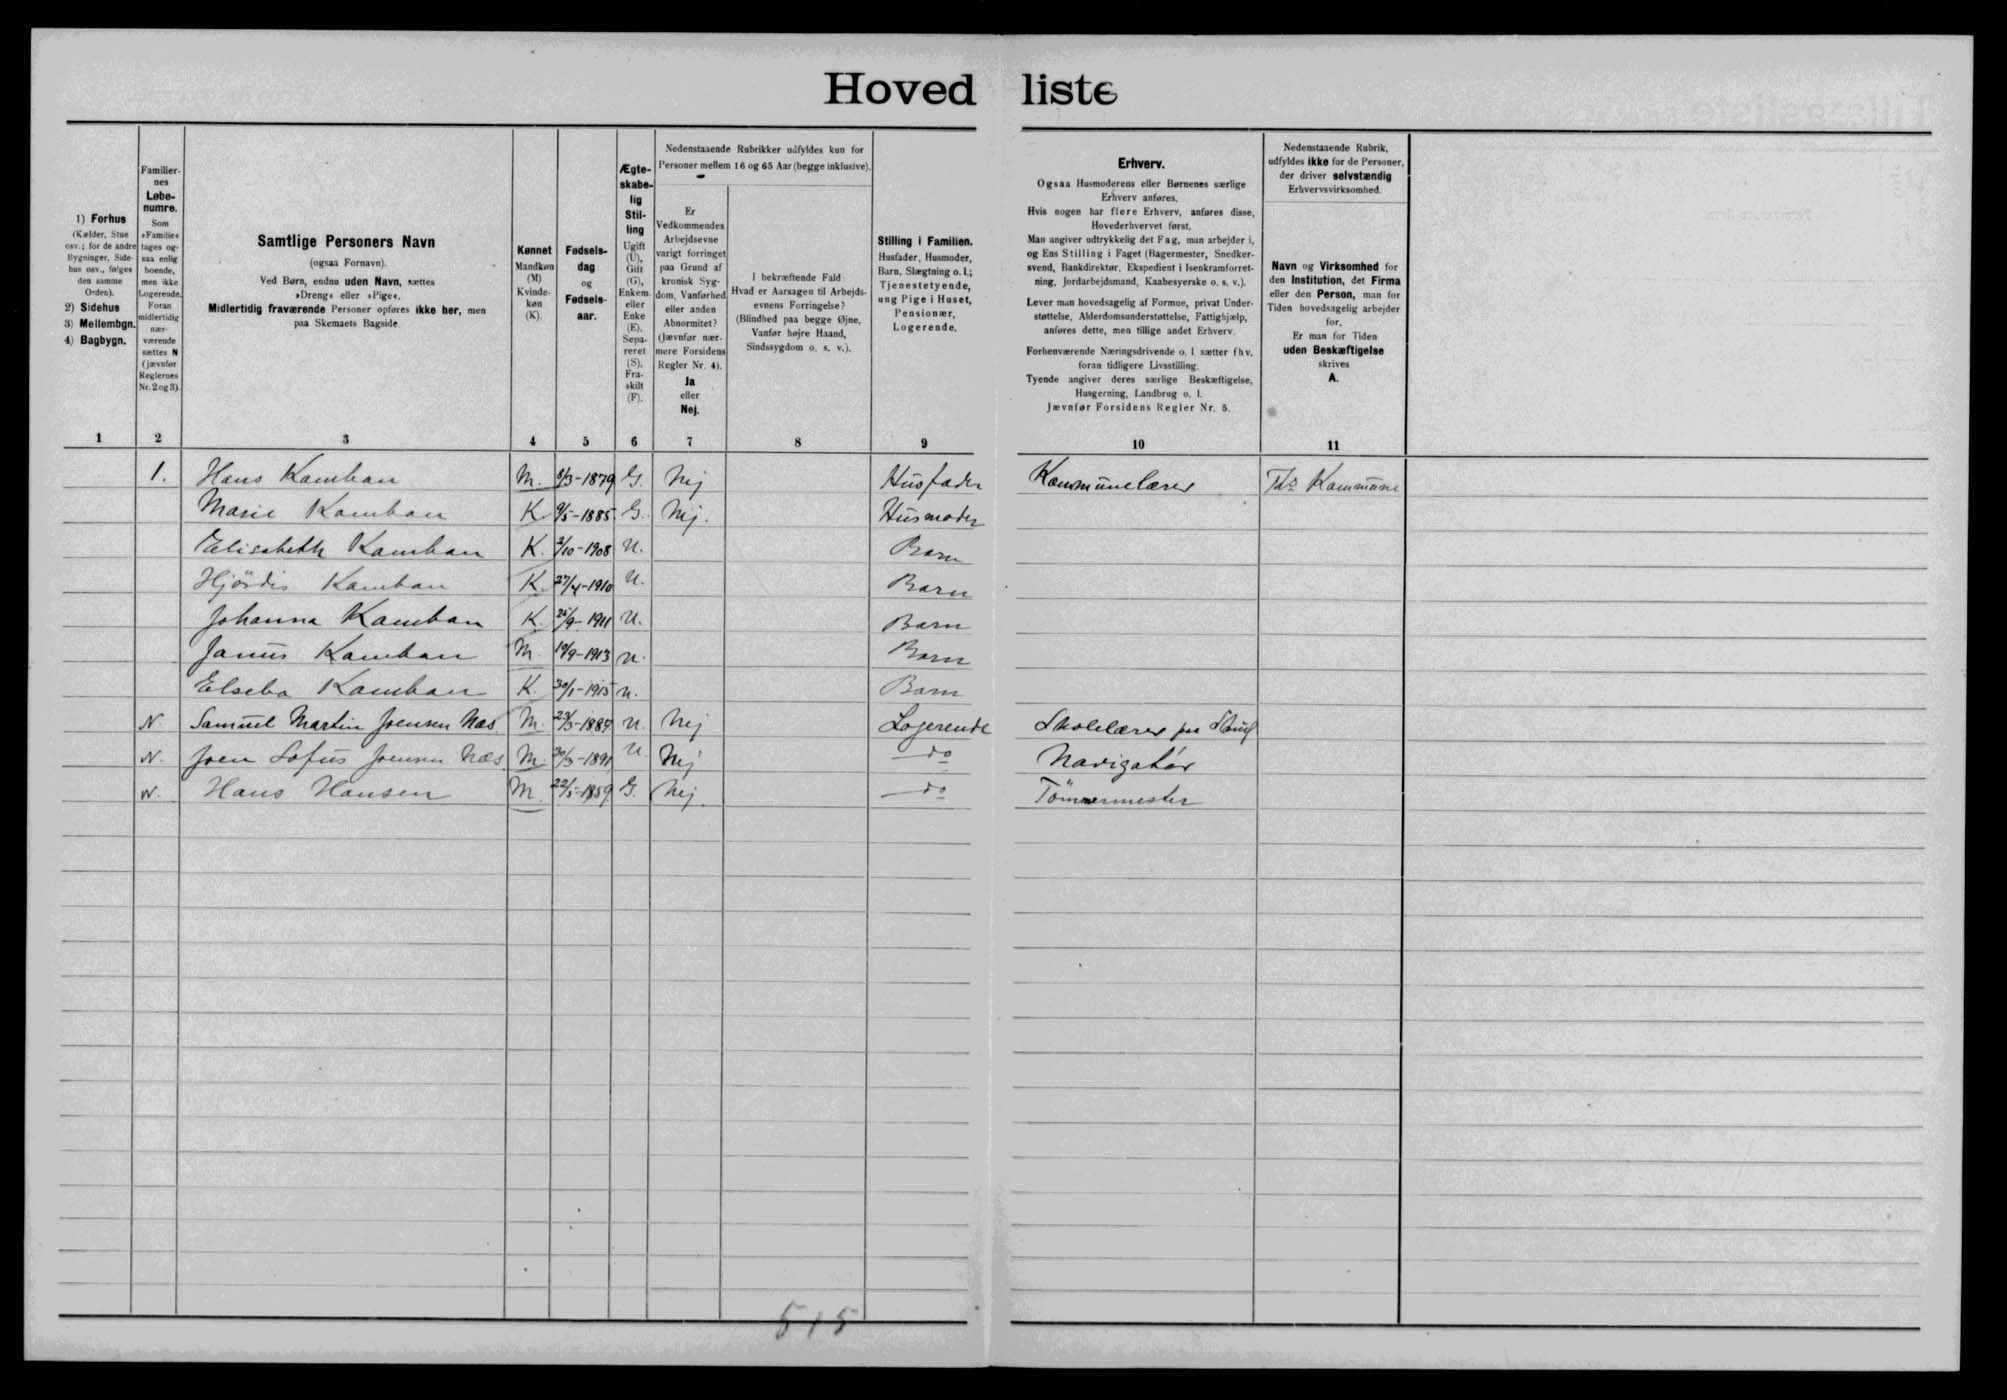 Hovedliste
1) Forhus
(Kælder, Stue
osv.; for de andre
Bygninger, Side-
hus osv., følges
den samme
Orden).
2) Sidehus
3) Mellembgn.
4) Bagbygn.
Familier-
nes
Løbe-
numre.
Som
»Familie«
tages og-
saa enlig
boende,
men ikke
Logerende.
Foran
midlertidig
nær-
værende
sættes N
(jævnfør
Reglernes
Nr. 2 og 3).
Samtlige Personers Navn
(ogsaa Fornavn).
Ved Børn, endnu uden Navn, sættes
»Dreng« eller »Pige«.
Midlertidig fraværende Personer opføres ikke her, men
paa Skemaets Bagside.
Kønnet
Mandkøn
(M)
Kvinde-
køn
(K).
Fødsels-
dag
og
Fødsels-
aar.
Ægte-
skabe-
lig
Stil-
ling
Ugift
(U),
Gift
(G),
Enkem.
eller
Enke
(E),
Sepa-
reret
(S),
Fra-
skilt
(F).
Nedenstaaende Rubrikker udfyldes kun for
Personer mellem 16 og 65 Aar (begge inklusive).
Er
Vedkommendes
Arbejdsevne
varigt forringet
paa Grund af
kronisk Syg-
dom, Vanførhed
eller anden
Abnormitet?
(Jævnfør nær-
mere Forsidens
Regler Nr. 4).
Ja
eller
Nej.
I bekræftende Fald:
Hvad er Aarsagen til Arbejds-
evnens Forringelse?
(Blindhed paa begge Øjne,
Vanfør højre Haand,
Sindssygdom o. s. v.).
Stilling i Familien.
Husfader, Husmoder,
Barn, Slægtning o. l.;
Tjenestetyende,
ung Pige i Huset,
Pensionær,
Logerende.
Erhverv.
Ogsaa Husmoderens eller Børnenes særlige
Erhverv anføres.
Hvis nogen har flere Erhverv, anføres disse,
Hovederhvervet først.
Man angiver udtrykkelig det Fag, man arbejder i,
og Ens Stilling i Faget (Bagermester, Snedker-
svend, Bankdirektør, Ekspedient i Isenkramforret-
ning, Jordarbejdsmand, Kaabesyerske o. s. v.).
Lever man hovedsagelig af Formue, privat Under-
støttelse, Alderdomsunderstøttelse, Fattighjælp,
anføres dette, men tillige andet Erhverv.
Forhenværende Næringsdrivende o. l. sætter fhv.
foran tidligere Livsstilling.
Tyende angiver deres særlige Beskæftigelse,
Husgerning, Landbrug o. l.
Jævnfør Forsidens Regler Nr. 5.
Nedenstaaende Rubrik,
udfyldes ikke for de Personer,
der driver selvstændig
Erhvervsvirksomhed.
Navn og Virksomhed for
den Institution, det Firma
eller den Person, man for
Tiden hovedsagelig arbejder
for.
Er man for Tiden
uden Beskæftigelse
skrives
A.
1 2 3 4 5 6 7 8 9 10 11
1. Hans Kamban M. 8/3-1879 G. Nej Husfader Kommunelærer Kommune
Marie Kamban K 9/5-1885 G. Nej. Husmoder
Elisabeth Kamban K. 2/10-1908 U. Barn
Hjördis Kamban K. 27/4-1910 U. Barn
Johanna Kamban K. 25/9-1911 U. Barn
Janus Kamban M 10/9-1913 U. Barn
Elseba Kamban K. 30/1-1915 U. Barn
N. Samuel Martin Joensen Næs M. 23/3-1889 U. Nej Logerende Skolelærer paa
N. Joen Sofus Joensen Næs M. 30/3-1891 U. Nej do Navigatør
N. Hans Hansen M. 22/5-1859 G. Nej. do Tömmermester
515